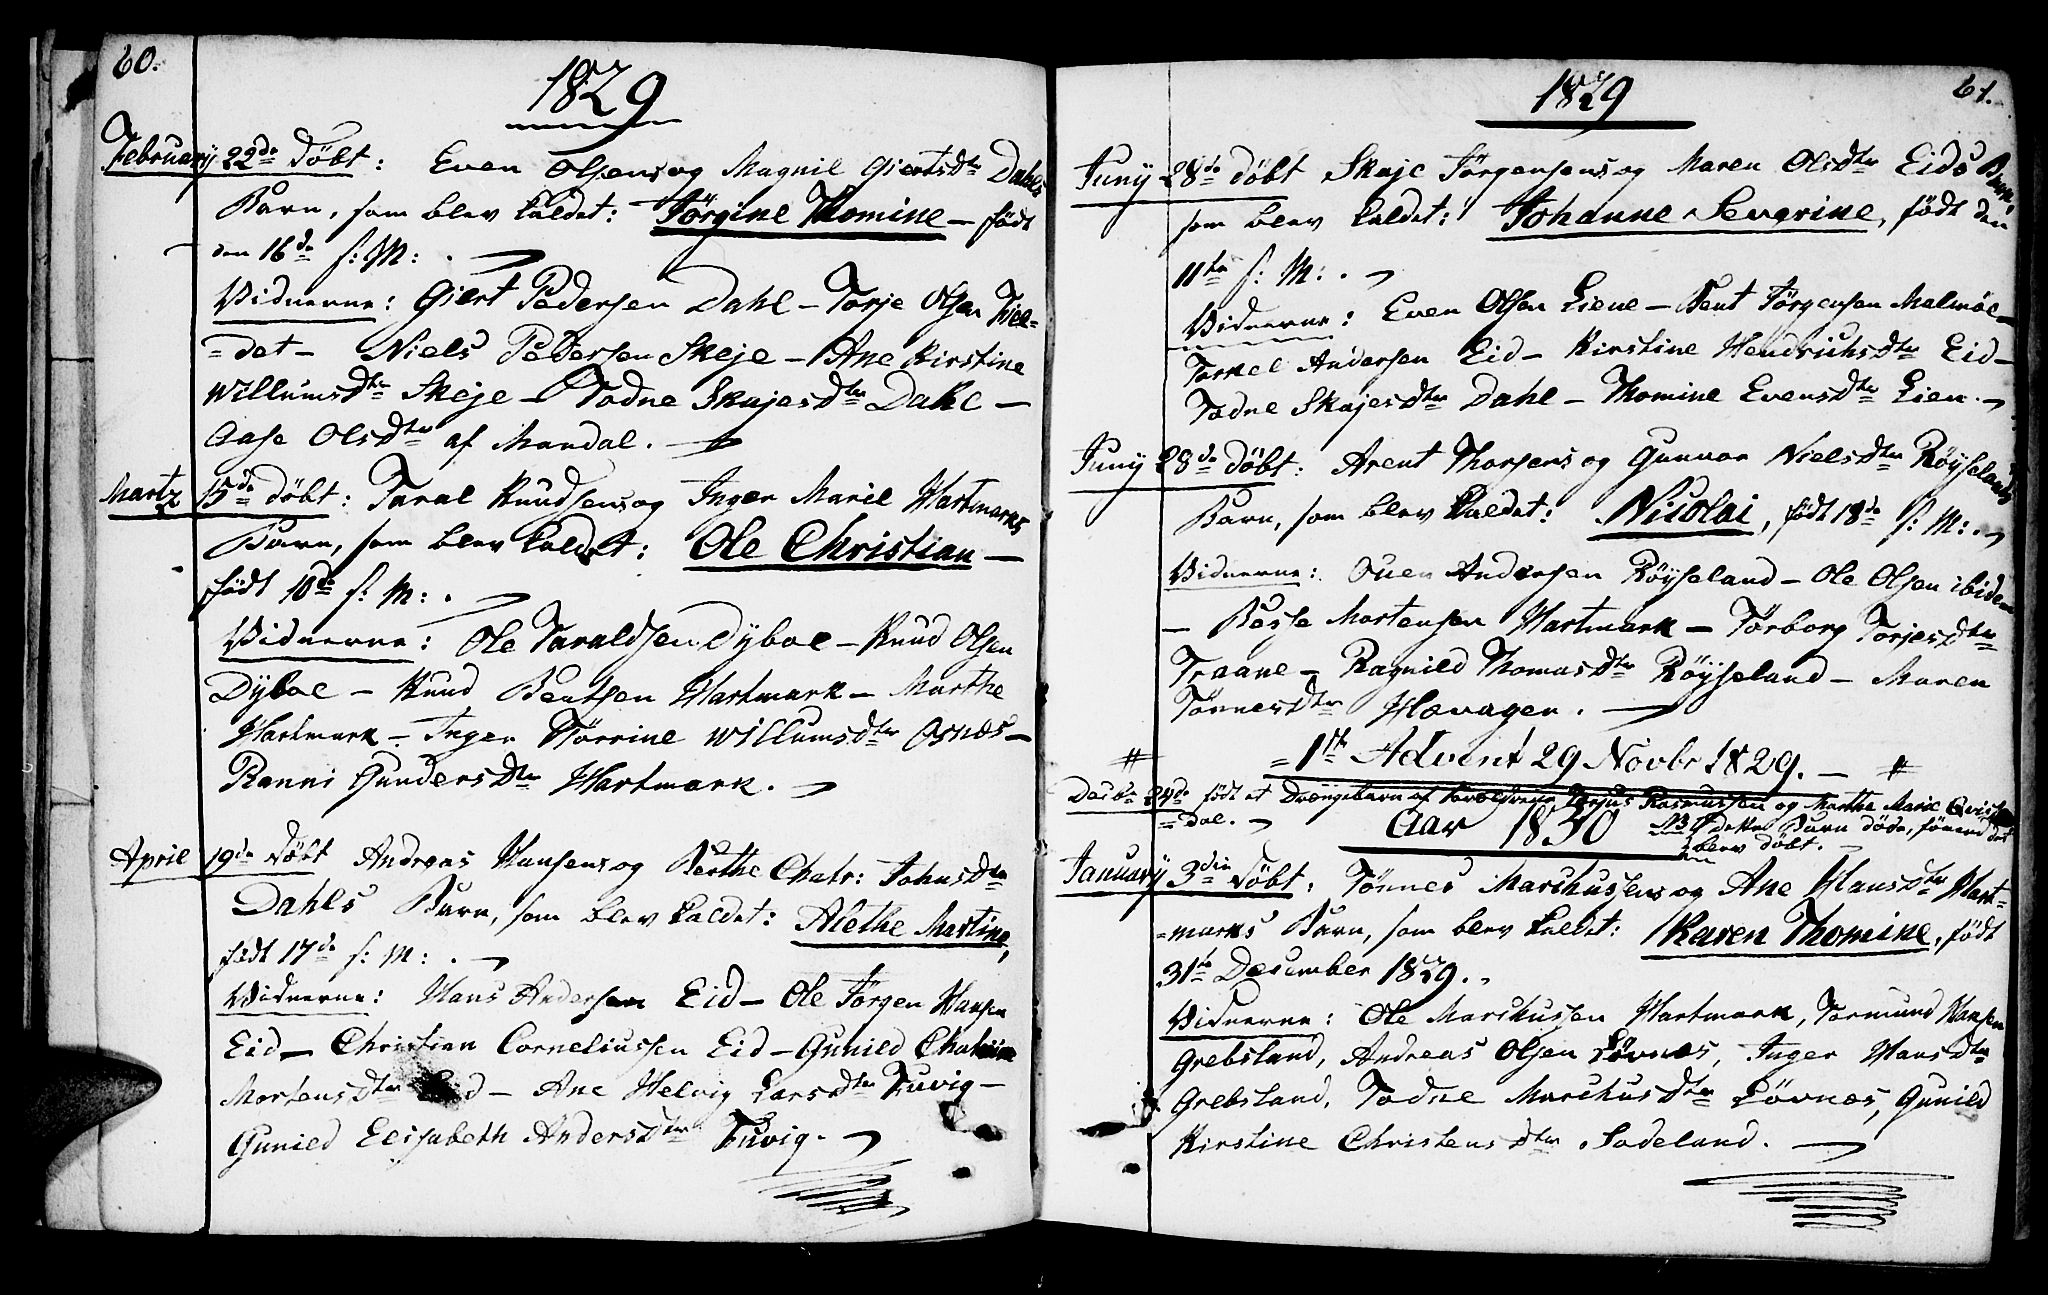 60.
1829
February 22de Döbt: Even Olsens og Magnil Giertsdtr Dahls
Barn, som blev kaldet: Törgine Thomine – födt
den 16de s: M: .
Vidnerne: Giert Pedersen Dahl – Torje Olsen
=det – Niels Pedersen Skeje – Ane Kirstine
Willumsdtr Skeje – Todne Skajesdtr Dahl –
Aase Olsdtr af Mandal.
Martz 15de döbt: Taral Knudsens og Inger Marie Hartmarks
Barn, som blev kaldet: Ole Christian –
födt 10de s: M: .
Vidnerne: Ole Taraldsen Dyboe – Knud Olsen
Dyboe – Knud Bentsen Hartmark – Marthe
Hartmark – Inger Törrine Willumsdtr Osnes –
Ranni Gundersdtr Hartmark.
April 19de Döbt Andreas Hansens og Berthe Chatr: Johnsdtr
Dahls Barn, som blev kaldet: Alethe Martine,
födt 17de s: M: .
Vidnerne: Hans Andersen Eid – Ole Jörgen Hansen
Eid – Christian Corneliussen Eid – Gunild Chatrine
Mortensdtr – Ane Helvig Larsdtr Tuvig –
Gunild Elisabeth Andersdtr Tuvig.
61.
1829
Juny 28de döbt Skaje Jörgensens og Maren Olsdtr Eids Barn,
som blev kaldet: Johanne Severine, födt den
11te s: M: .
Vidnerne: Even Olsen Liene – Bent Jörgensen Malmöe –
Torkel Andersen Eid – Kirstine Hendrichsdtr Eid –
Todne Skajesdtr Dahl – Thomine Evensdtr Lien.
Juny 28de döbt: Arent Thorsens og Gunnor Nielsdtr Röyselands
Barn, som blev kaldet: Nicolai, födt 18de s: M: .
Vidnerne: Ouen Andersen Röyseland – Ole Olsen ibidem
– Besse Mortensen Hartmark – Törborg Torjesdtr
Traane – Ragnild Thomasdtr Röyseland – Maren
Tönnesdtr Hævagen.
# =1ste Advent 29 Novbr 1829. – #
Decbr 24de födt et Drængebarn af Forældrene Terjus Rasmussen og Marthe Marie Qvist=
=dal. Aar 1830 NB dette Barn döde, förend det
blev döbt.
January 3die Döbt: Tönnes Marchussens og Ane Hansdtr Hart=
=marks Barn, som blev kaldet: Karen Thomine, födt
31te December 1829.
Vidnerne: Ole Marchussen Hartmark, Tormund Hansen
Grebsland, Andreas Olsen Lövnes, Inger Hansdtr
Grebsland, Todne Marchusdtr Lövnes, Gunild
Kirstine Christensdtr Sodeland.